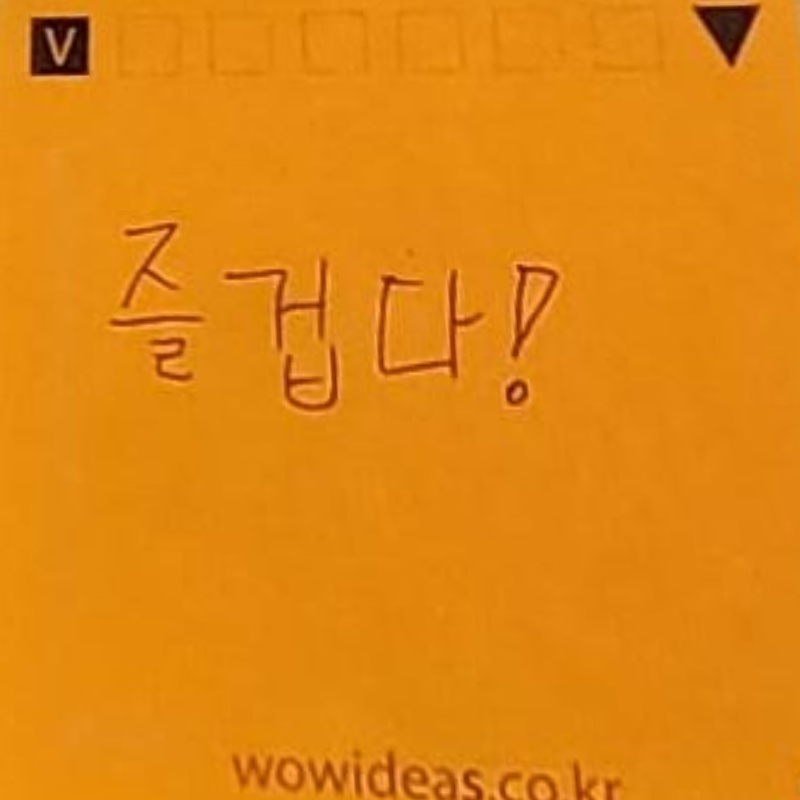 V
즐겁다!
wowideas.co.kr